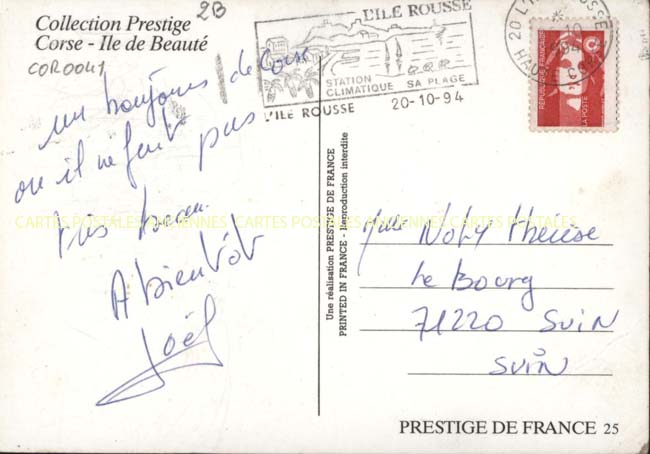 Collection Prestige
Corse - Ile de Beauté
COR0041
2B
L'ILE ROUSSE
STATION
CLIMATIQUE SA PLAGE
L'ILE ROUSSE 20-10-94
REPUBLIQUE FRANÇAISE
LA POSTE
un bonjour de Corse
ou il ne fait pas
très beau.
A bientôt
Joël
Une réalisation PRESTIGE DE FRANCE
PRINTED IN FRANCE - Reproduction interdite
Mme Noly Thérèse
Le Bourg
71220 SUIN
SUIN
PRESTIGE DE FRANCE 25
CARTES POSTALES ANCIENNES CARTES POSTALES ANCIENNES CARTES POSTALES